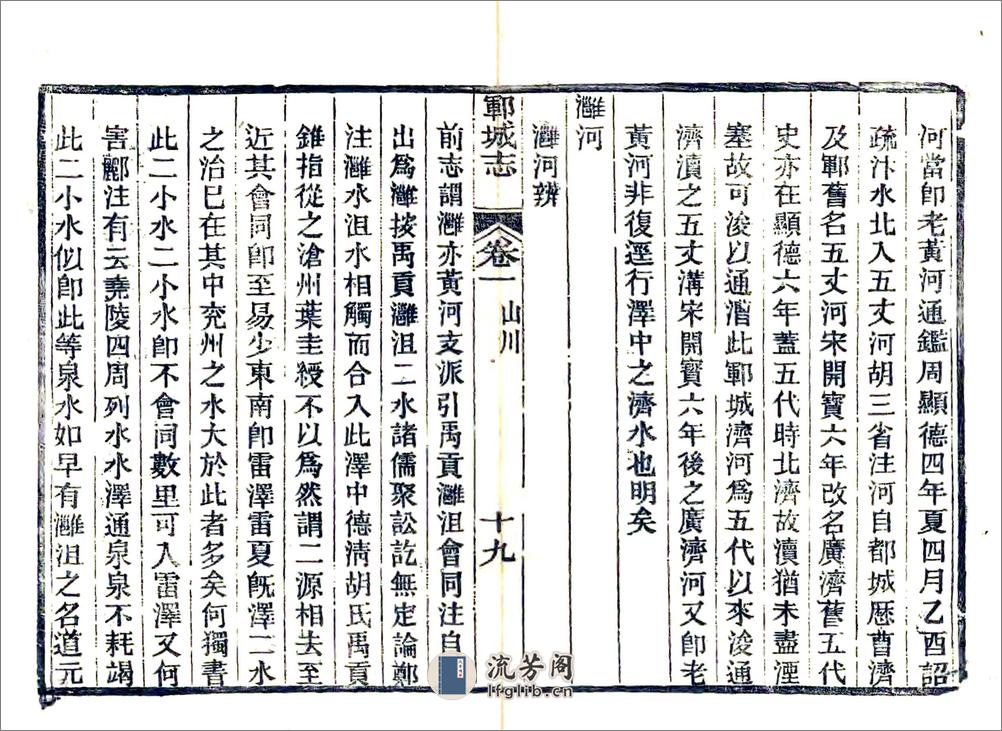 河當即老黃河通鑑周顯德四年夏四月乙酉詔
疏汴水北入五丈河胡三省注河自都城歷曹濟
及鄆舊名五丈河宋開寶六年改名廣濟舊五代
史亦在顯德六年蓋五代時北濟故瀆猶未盡湮
塞故可浚以通漕此鄆城濟河爲五代以來浚通
濟瀆之五丈溝宋開寶六年後之廣濟河又即老
黃河非復逕行澤中之濟水也明矣
灉河
灉河辨
鄆城志 卷一 山川 十九
前志謂灉亦黃河支派引禹貢灉沮會同注自
出爲灉按禹貢灉沮二水諸儒聚訟訖無定論鄭
注灉水沮水相觸而合入此澤中德淸胡氏禹貢
錐指從之滄州葉圭綬不以爲然謂二源相去至
近其會同即至易少東南即雷澤雷夏旣澤二水
之治已在其中兖州之水大於此者多矣何獨書
此二小水二小水即不會同數里可入雷澤又何
害酈注有云堯陵四周列水水澤通泉泉不耗竭
此二小水似即此等泉水如早有灉沮之名道元
流芳阁
lfglib.cn